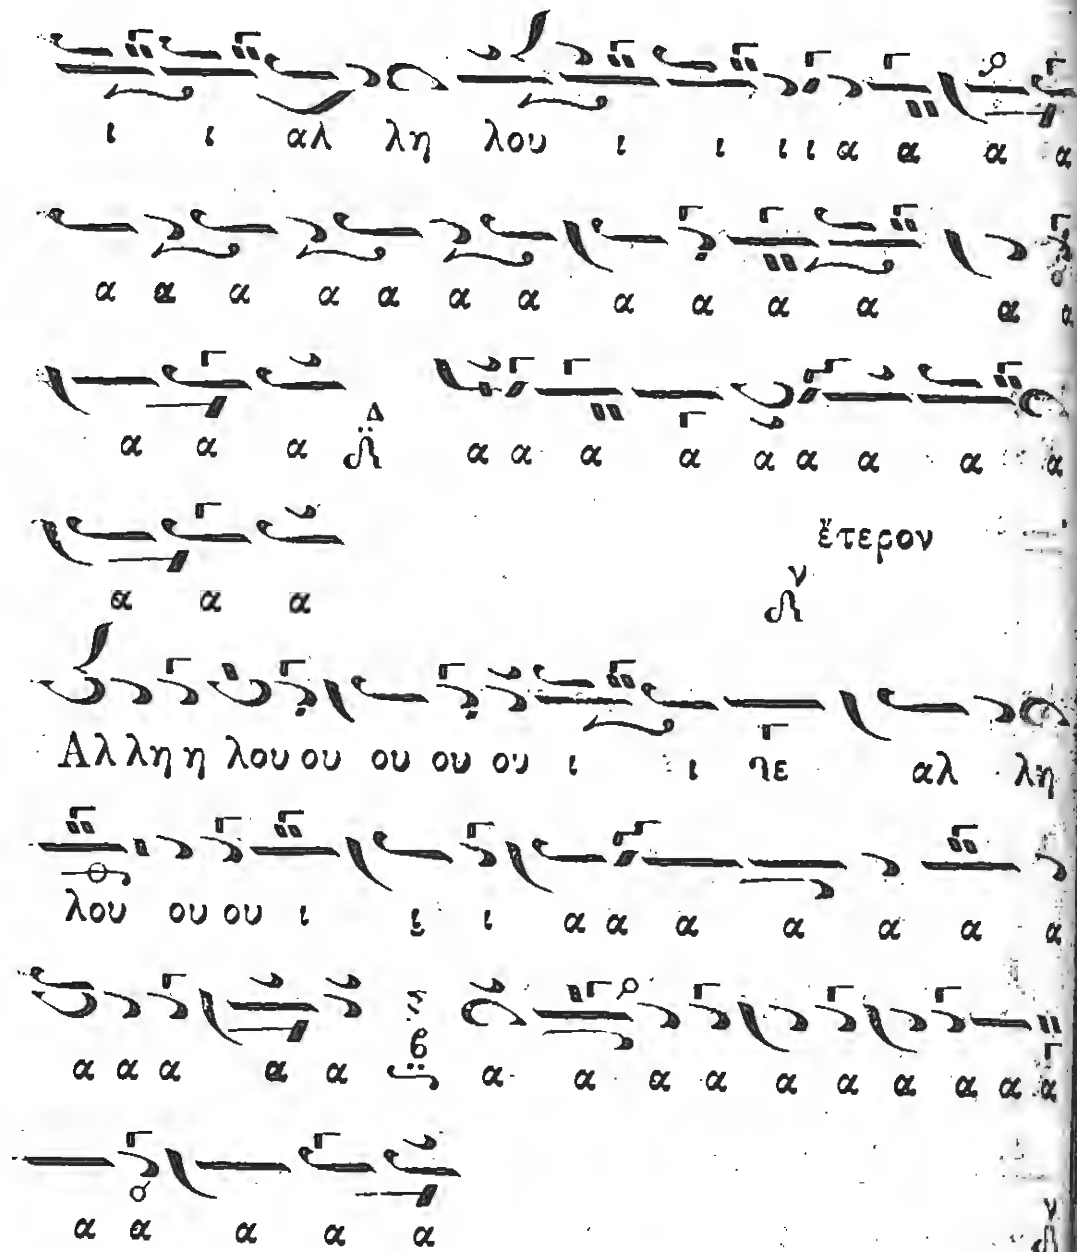 ι ι αλ λη λου ι ι ι ι α α α α
α α α α α α α α α α α α α
α α α Δ α α α α α α α α α
α α α ἕτερον
ν
Αλ λη η λου ου ου ου ου ι ι τε αλ λη
λου ου ου ι ι ι α α α α α α α
α α α α α ϐ α α α α α α α α α α
α α α α α ν